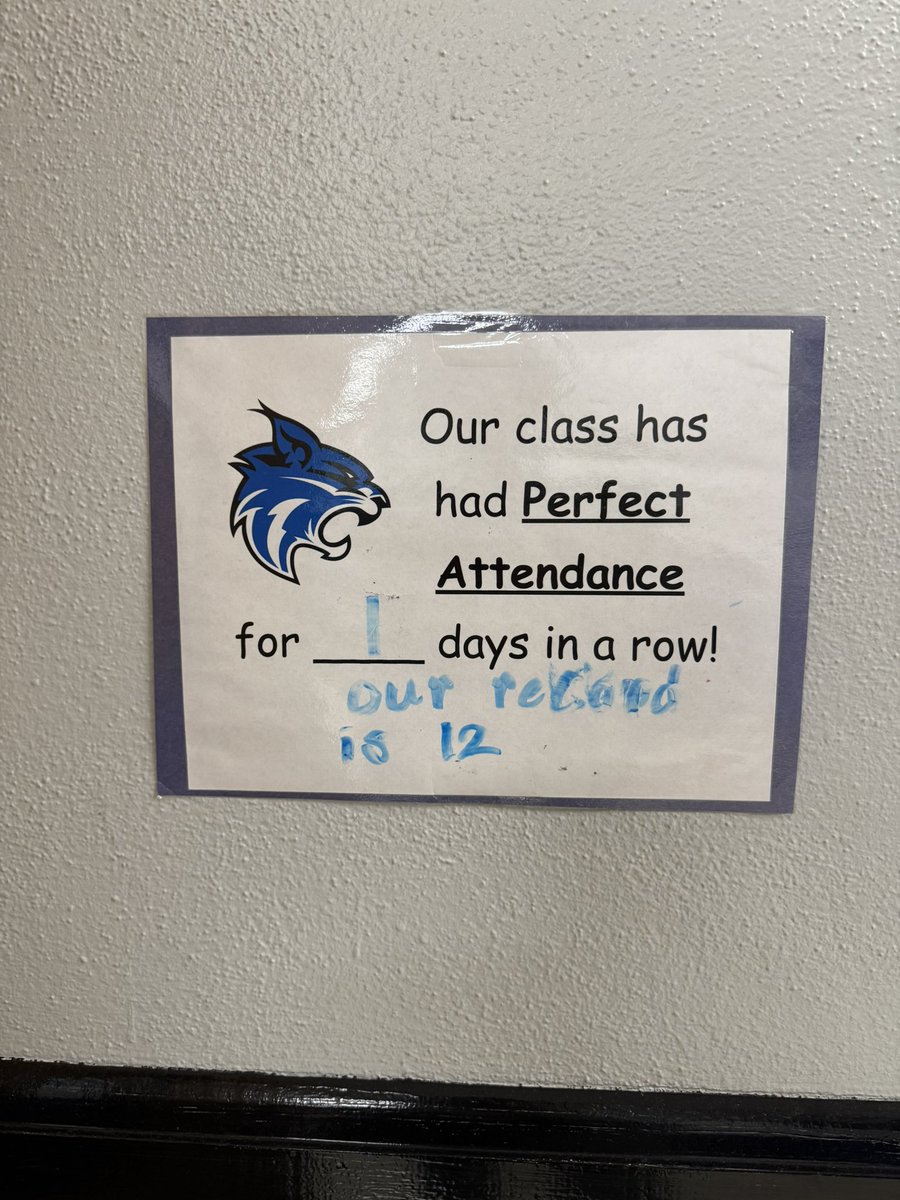 Our class has
had Perfect
Attendance
for 1 days in a row!
our record
is 12